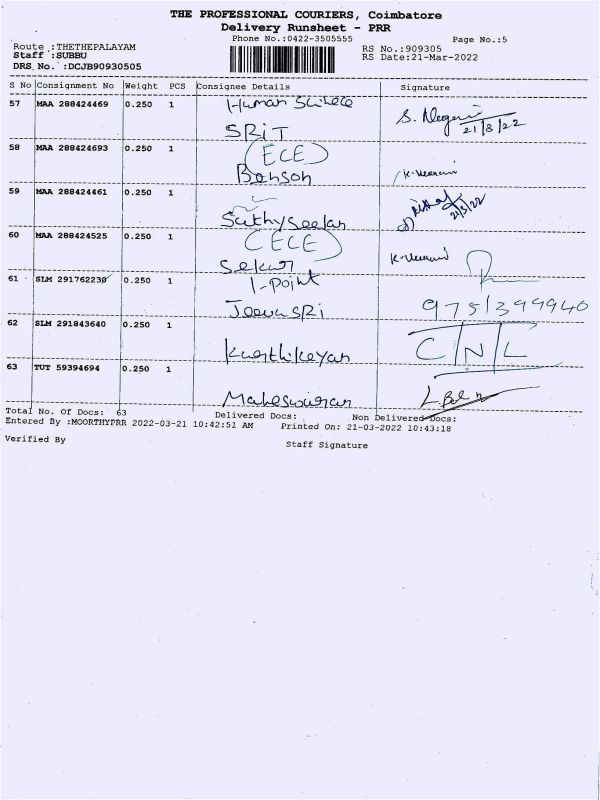 THE PROFESSIONAL COURIERS, Coimbatore
Delivery Runsheet - PRR
Phone No.:0422-3505555 Page No.:5
Route :THETHEPALAYAM RS No.:909305
Staff :SUBBU RS Date:21-Mar-2022
DRS No. :DCJB90930505
S No Consignment No Weight PCS Consignee Details Signature
57 MAA 288424469 0.250 1 Human
SRIT 21/3/22
58 MAA 288424693 0.250 1 (ECE)
Benson
59 MAA 288424461 0.250 1
Sathyseelan 21/3/22
60 MAA 288424525 0.250 1 (ECE)
Sekar
61 SLM 291762230 0.250 1 1-Point
Jeevasri 9751399940
62 SLM 291843640 0.250 1 CNL
Karthikeyan
63 TUT 59394694 0.250 1
Maheswaran
Total No. Of Docs: 63 Delivered Docs: Non Delivered Docs:
Entered By :MOORTHYPRR 2022-03-21 10:42:51 AM Printed On: 21-03-2022 10:43:18
Verified By Staff Signature